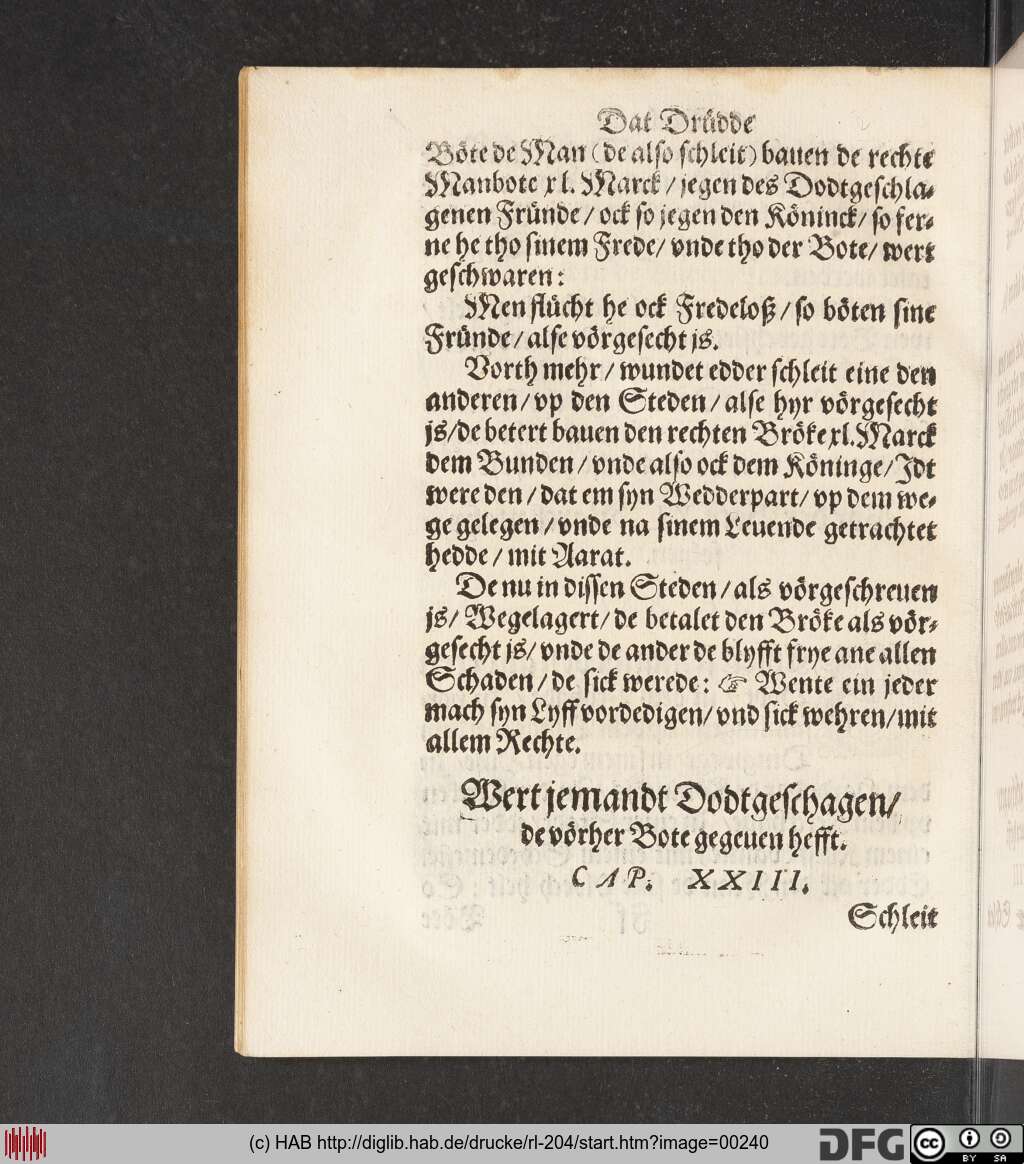 Dat Drüdde
Böte de Man (de also schleit) bauen de rechte
Manbote xl. Marck / jegen des Dodtgeschla-
genen Fründe / ock so jegen den Köninck / so fer-
ne he tho sinem Frede / vnde tho der Bote / wert
geschwaren:
Men flücht he ock Fredeloß / so böten sine
Fründe / alse vörgesecht js.
Vorth mehr / wundet edder schleit eine den
anderen / vp den Steden / alse hyr vörgesecht
js / de betert bauen den rechten Bröke xl. Marck
dem Bunden / vnde also ock dem Köninge / Jdt
were den / dat em syn Wedderpart / vp dem we-
ge gelegen / vnde na sinem Leuende getrachtet
hedde / mit Aarat.
De nu in dissen Steden / als vörgeschreuen
js / Wegelagert / de betalet den Bröke als vör-
gesecht js / vnde de ander de blyfft frye ane allen
Schaden / de sick werede: ☞ Wente ein jeder
mach syn Lyff vordedigen / vnd sick wehren / mit
allem Rechte.
Wert jemandt Dodtgeschagen /
de vörher Bote gegeuen hefft.
CAP. XXIII.
Schleit
(c) HAB http://diglib.hab.de/drucke/rl-204/start.htm?image=00240
DFG
cc
BY SA